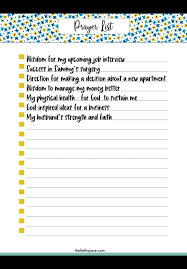 Prayer List
Wisdom for my upcoming job interview
Success in Sammy's surgery
Direction for making a decision about a new apartment
Wisdom to manage my money better
My physical health - for God to sustain me
God-inspired ideas for a business
My husband's strength and faith
thefaithspace.com